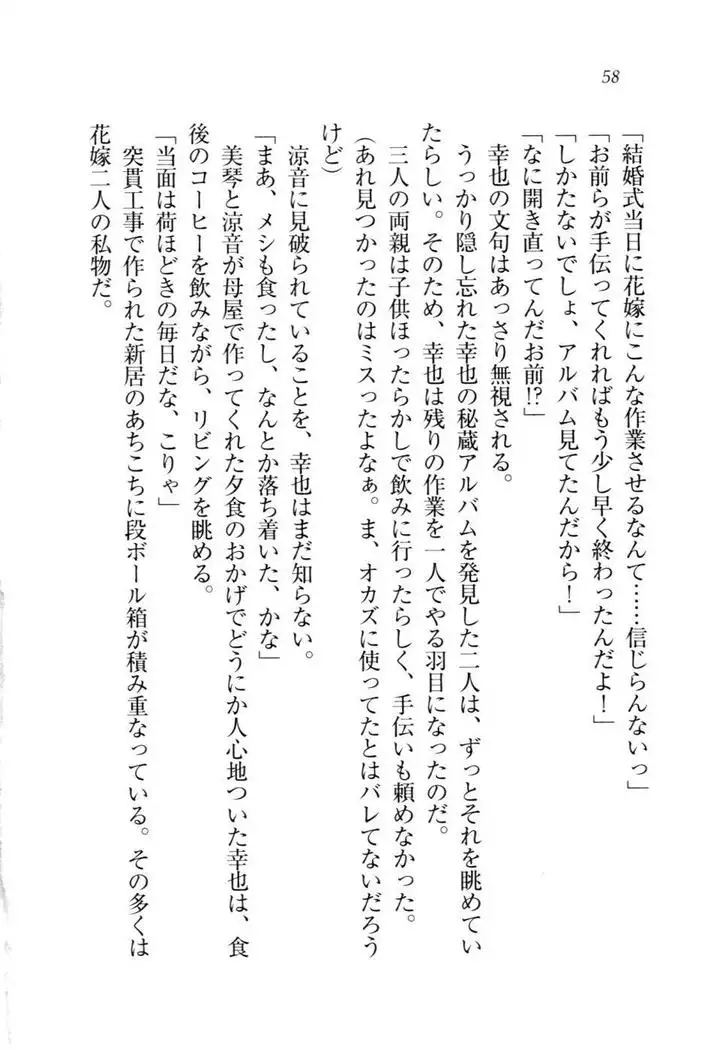 58
「結婚式当日に花嫁にこんな作業させるなんて……信じらんないっ」
「お前らが手伝ってくれればもう少し早く終わったんだよ！」
「しかたないでしょ、アルバム見てたんだから！」
「なに開き直ってんだお前!?」
幸也の文句はあっさり無視される。
うっかり隠し忘れた幸也の秘蔵アルバムを発見した二人は、ずっとそれを眺めてい
たらしい。そのため、幸也は残りの作業を一人でやる羽目になったのだ。
三人の両親は子供ほったらかしで飲みに行ったらしく、手伝いも頼めなかった。
(あれ見つかったのはミスったよなぁ。ま、オカズに使ってたとはバレてないだろう
けど)
涼音に見破られていることを、幸也はまだ知らない。
「まあ、メシも食ったし、なんとか落ち着いた、かな」
美琴と涼音が母屋で作ってくれた夕食のおかげでどうにか人心地ついた幸也は、食
後のコーヒーを飲みながら、リビングを眺める。
「当面は荷ほどきの毎日だな、こりゃ」
突貫工事で作られた新居のあちこちに段ボール箱が積み重なっている。その多くは
花嫁二人の私物だ。